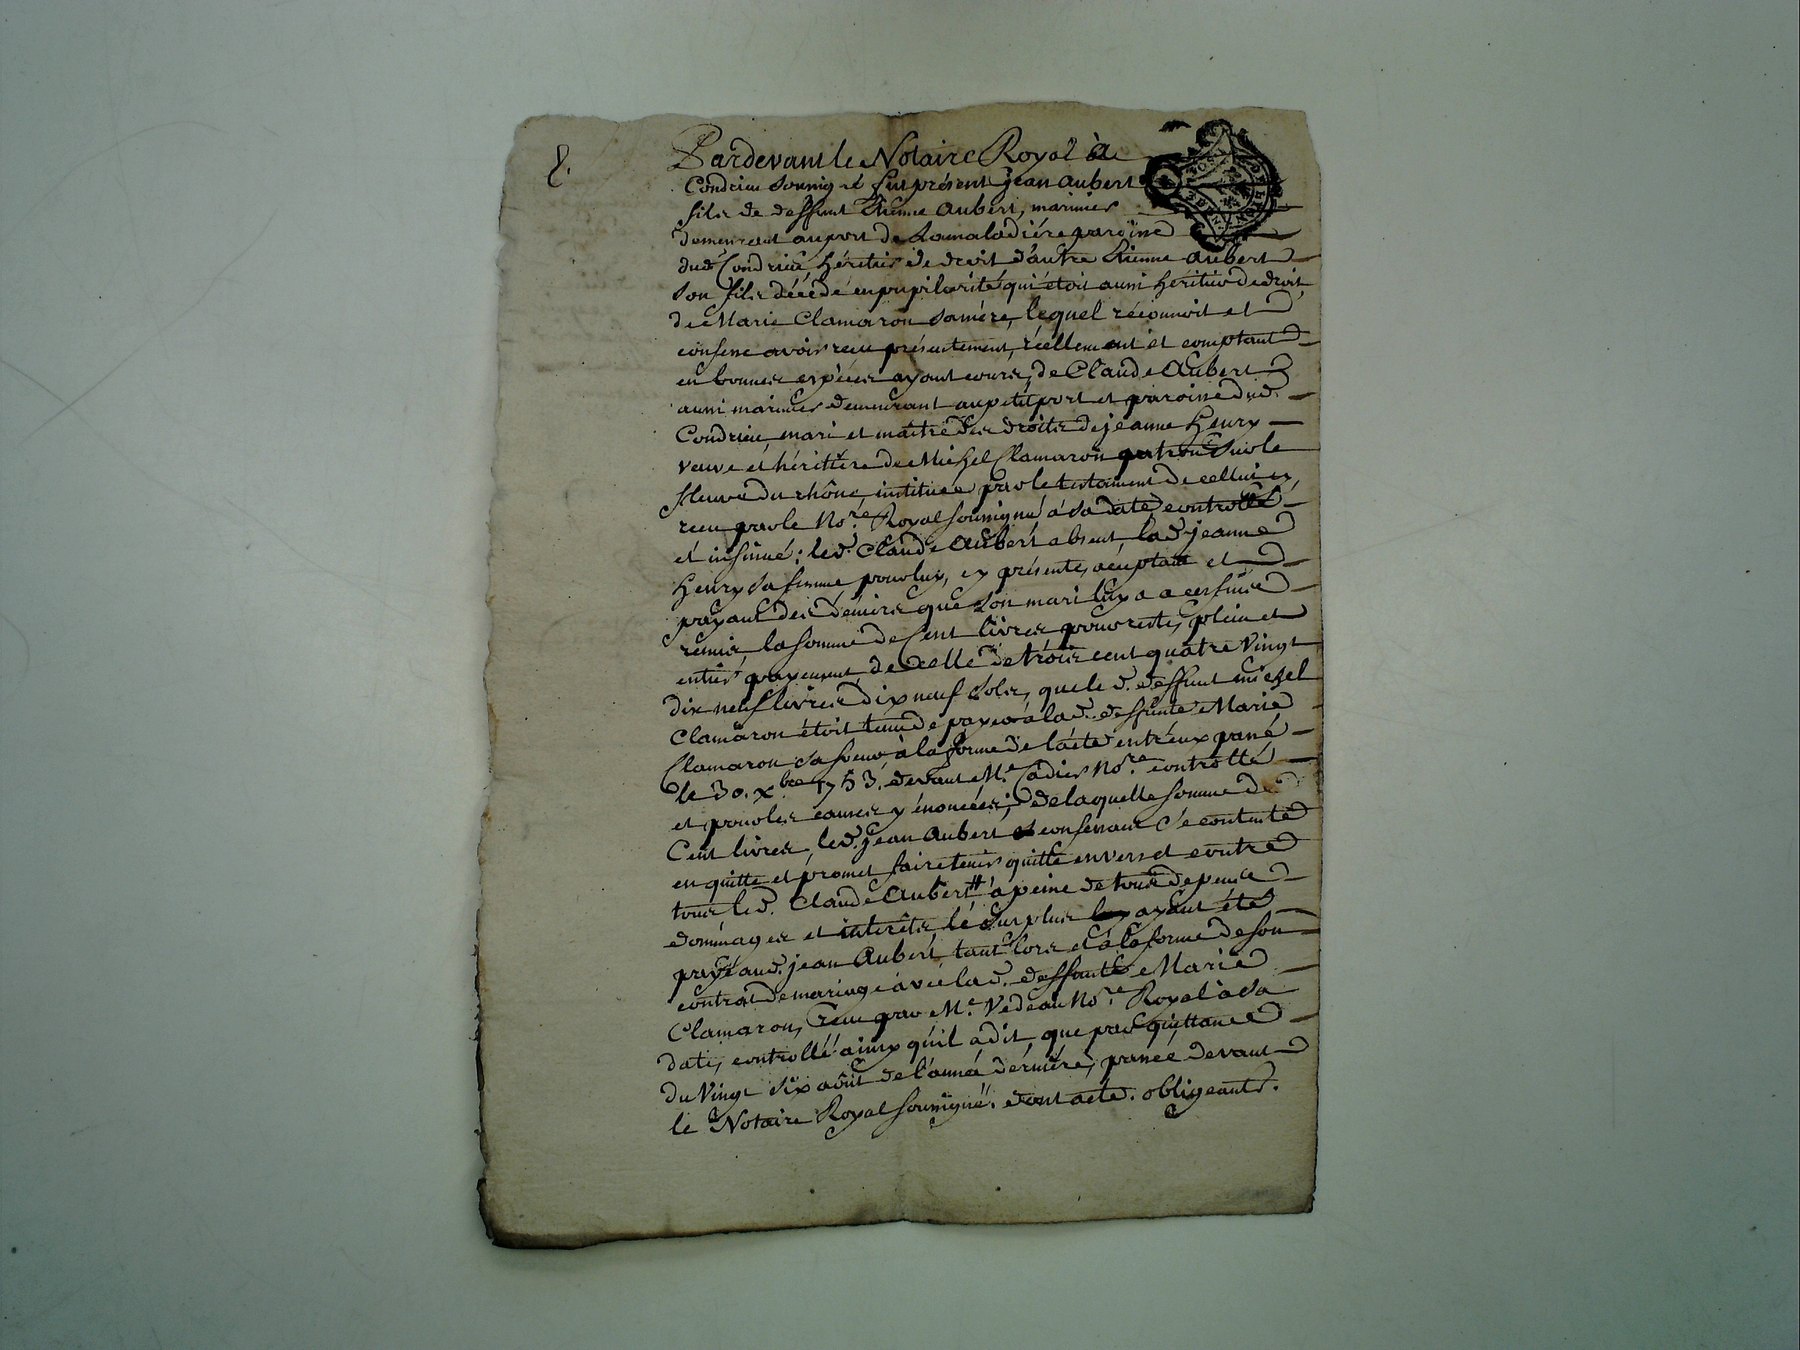 8.
Pardevant le Notaire Royal à
Condrieu soussigné fut présent jean aubert
fils de deffunt Etienne Aubert, marinier
demeurant au port de Lamaladiére paroisse
dud Condrieu, héritier de droit d'autre Etienne Aubert
son fils décédé en pupilarité qui étoit aussi héritier de droit
de Marie Clamaron samére, lequel réconnoit et
confesse avoir recu présentement, réellement et comptant
en bonnes espéces ayant cours, de Claude Aubert
aussi marinier demeurant au petit port et paroisse dud
Condrieu, mari et maitre des droits de jeanne Henry
veuve et héritiére de Michel Clamaron patron sur le
fleuve du rhône, instituée par le testament de celluicy,
recu par le No.re Royal soussigné à sa date controllé
et insinué; led. Claude Aubert absent, lad. jeanne
Henry sa femme pour luy, cy présente, acceptant et
payant des deniers que son mari luy a a ces fins
remis la somme de Cent livres pour reste, plein et
entier payement de celle de trois cent quatre vingt
dix neuf livres dix neuf sols, que led. deffunt michel
Clamaron étoit tenu de payer à lad. deffunte Marie
Clamaron sa soeur, à la forme de l'acte entréux passé
le 30. Xbre 1753. devant Me. Cadier No.re controllé
et pour les causes y énoncées; de laquelle somme de
Cent livres, led. jean Aubert confessant se contente
en quitte et promet faire tenir quitte envers et contre
tous led. Claude Aubert à peine de tous depens
dommages et intérêts, le surplus ayant été
payé aud. jean Aubert tant lors et à la forme de son
contrat de mariage avec lad. deffunte Marie
Clamaron, recu par Me. Vedeau No.re Royal à sa
date, controllé ainsy qu'il a dit, que par quittance
du Vingt six août de l'anné derniére, passée devant
le Notaire Royal soussigné. dont acte. obligeants.